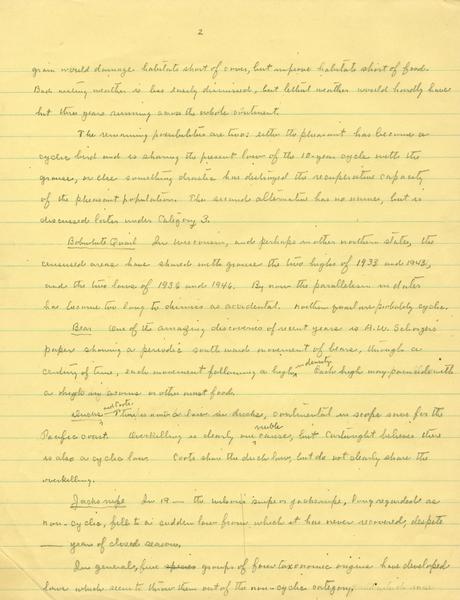 2
grain would damage habitats short of cover, but improve habitats short of food.
Bad nesting weather is less easily dismissed, but lethal weather would hardly have
hit three years running across the whole continent.
The remaining possibilities are two: either the pheasant has become a
cyclic bird and is sharing the present low of the 10-year cycle with the
grouse, or else something drastic has destroyed the recuperative capacity
of the pheasant population. The second alternative has no name, but is
discussed later under Category 3.
Bobwhite Quail In Wisconsin, and perhaps in other northern states, the
censused areas have shared with grouse the two highs of 1933 and 1943,
and the two lows of 1936 and 1946. By now the parallelism in dates
has become too long to dismiss as accidental. Northern quail are probably cyclic.
Bear One of the amazing discoveries of recent years is A.W. Schorger's
paper showing a periodic southward movement of bears, through a
century of time, each movement following a high in density. Each high may coincide with
a in acorns or other mast foods.
Ducks and Coots There is now a low in ducks, continental in scope save for the
Pacific coast. Overkilling is clearly one visible cause, but Cartwright believes there
is also a cyclic low. Coots share the duck low, but do not clearly share the
overkilling.
Jacksnipe In 19— the snipe or jacksnipe, long regarded as
non-cyclic, fell to a sudden low from which it has never recovered, despite
— years of closed season.
In general, five groups of four taxonomic origins have developed
lows which seem to throw them out of the non-cyclic category,